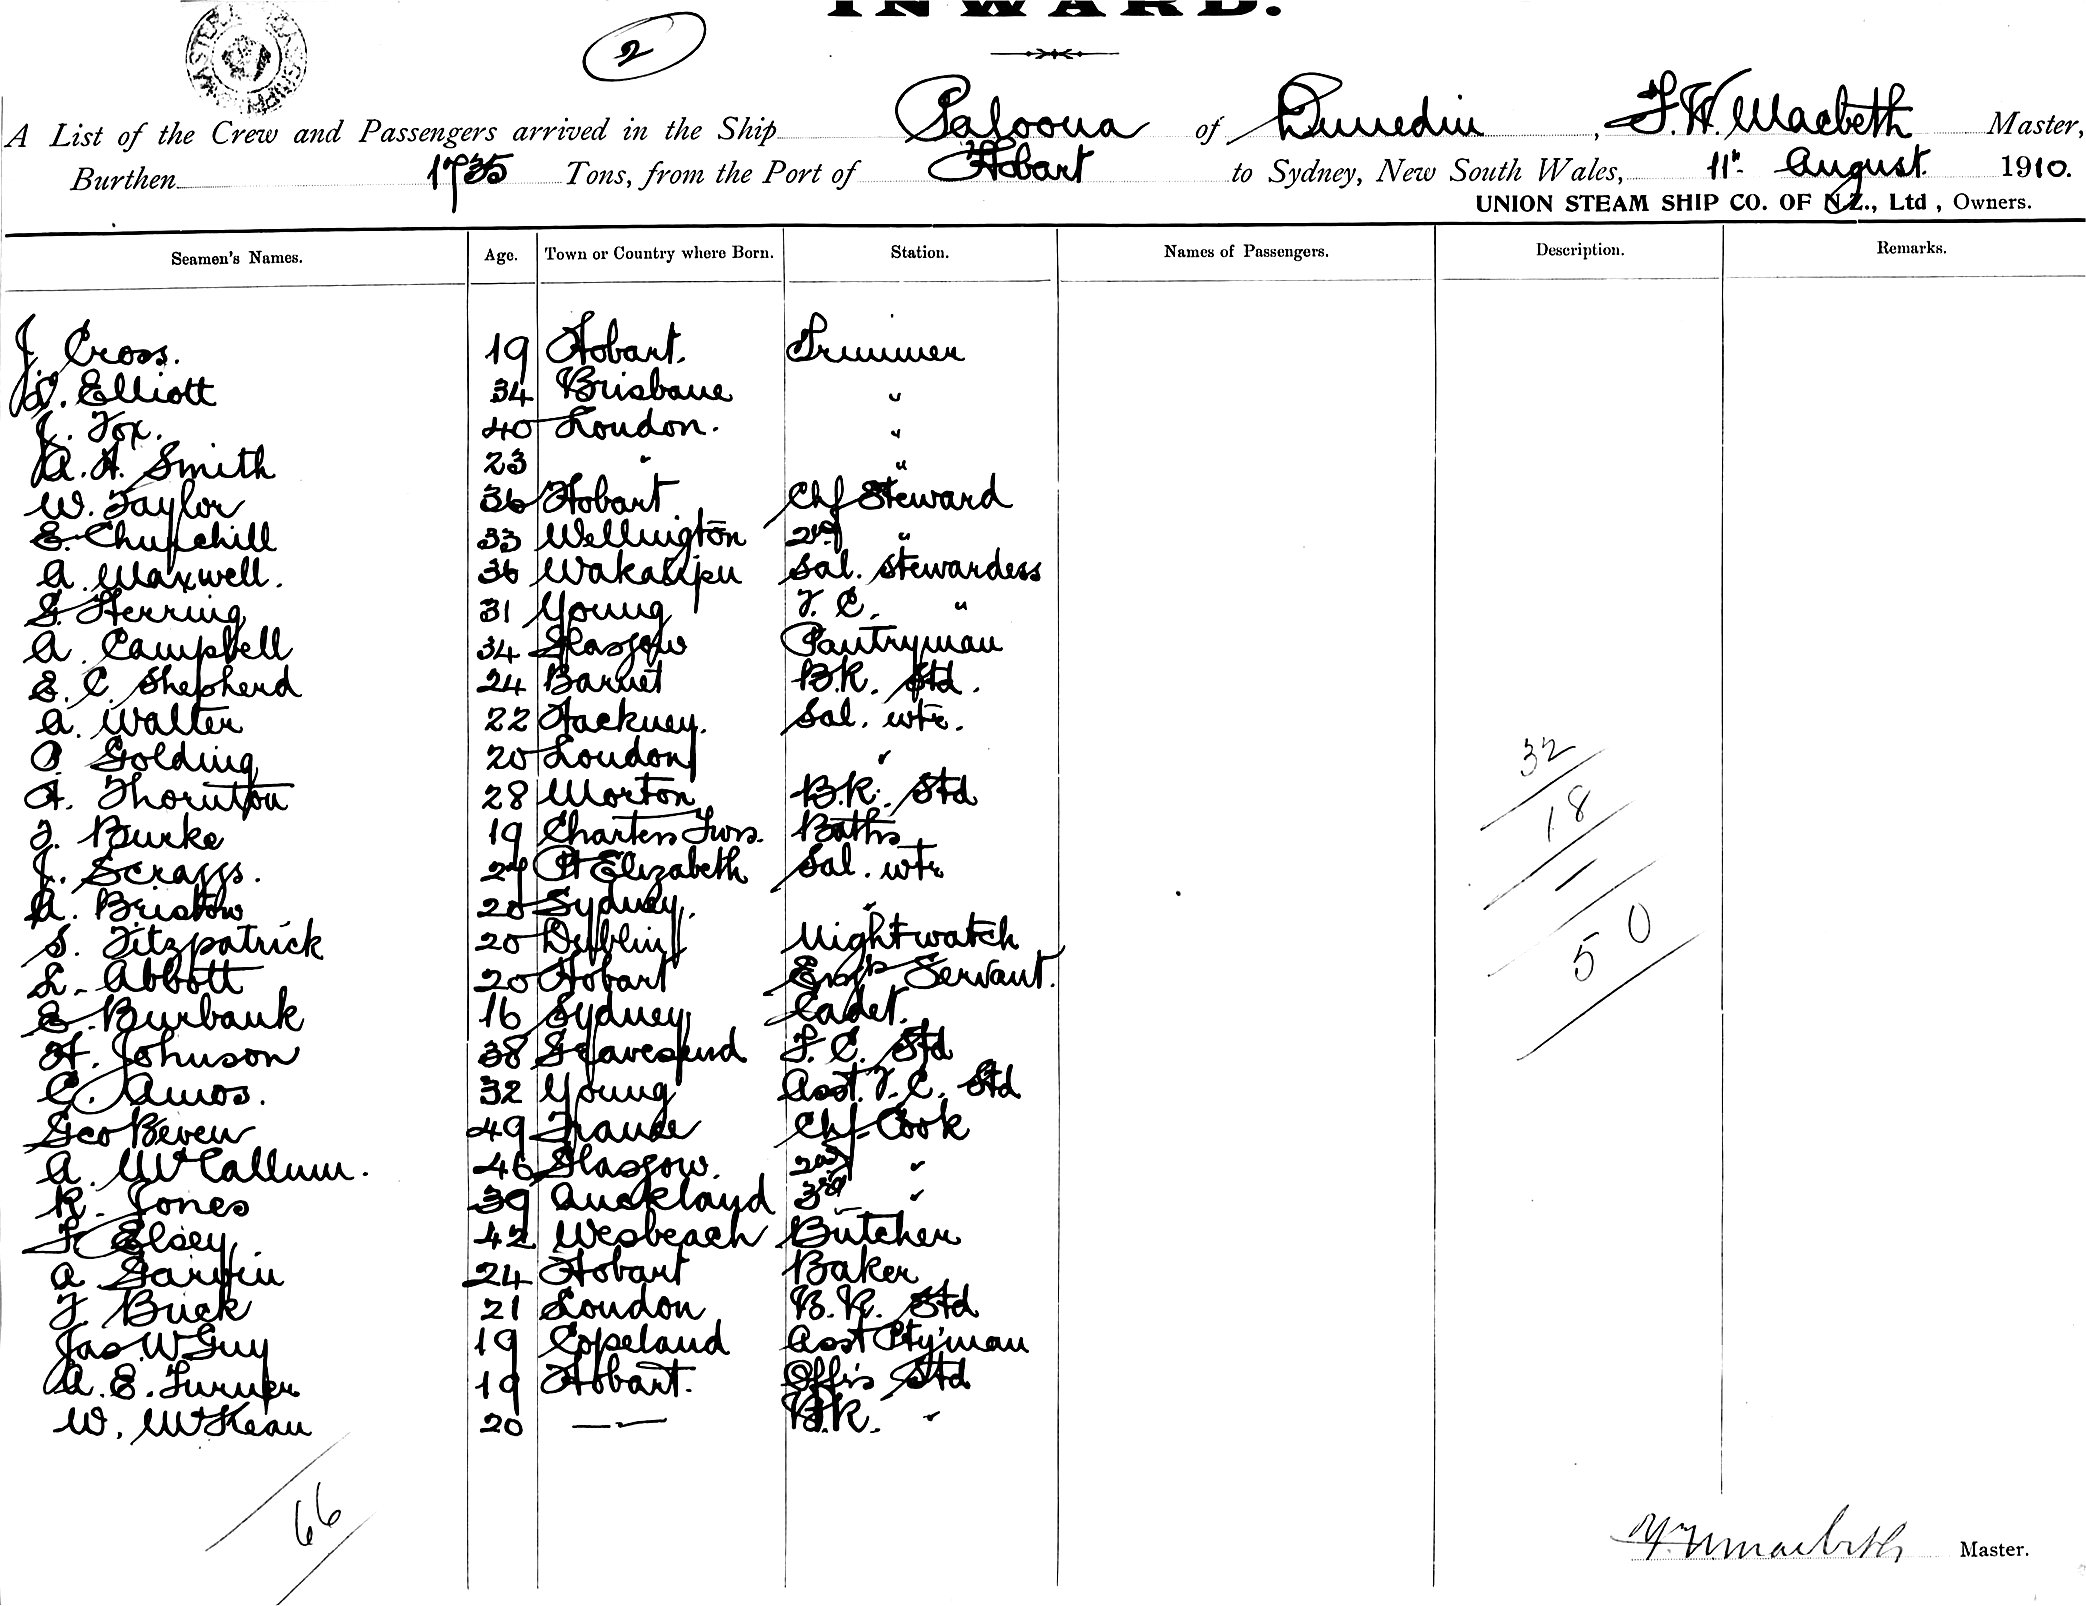 INWARD.
2
A List of the Crew and Passengers arrived in the Ship Paloona of Dunedin, F. W. Macbeth Master,
Burthen 1735 Tons, from the Port of Hobart to Sydney, New South Wales, 11th August 1910.
UNION STEAM SHIP CO. OF N.Z., Ltd, Owners.
Seamen's Names. Age. Town or Country where Born. Station. Names of Passengers. Description. Remarks.
J. Cross. 19 Hobart. Trimmer
W. Elliott 34 Brisbane "
J. Fox. 40 London. "
A. H. Smith 23 " "
W. Taylor 36 Hobart Chf Steward
E. Churchill 33 Wellington 2nd "
A. Maxwell. 36 Wakatipu Sal. Stewardess
S. Herring 31 Young F. C. "
A. Campbell 34 Glasgow Pantryman
E. C. Shepherd 24 Barnet B.R. Std.
A. Walter 22 Hackney. Sal. wtr.
O. Golding 20 London "
H. Thornton 28 Morton B.R. Std
J. Burke 19 Charters Twrs. Baths
J. Scraggs. 27 Pt Elizabeth Sal. wtr
A. Bristow 20 Sydney. "
S. Fitzpatrick 20 Dublin Nightwatch
L. Abbott 20 Hobart Engrs Servant.
E. Burbank 16 Sydney Cadet.
H. Johnson 38 Gravesend F. C. Std
C. Amos. 32 Young Asst. F. C. Std
Geo Beven 49 France Chf. Cook
A. McCallum. 46 Glasgow. 2nd "
R. Jones 39 Auckland 3rd "
F. Elsey 42 Wesbeach Butcher
A Garvin 24 Hobart Baker
F Buck 21 London B.R. Std
Jas. W Guy 19 Copeland Asst Pty'man
A. E. Turner 19 Hobart. Offrs Std
W. McKean 20 — " — B.R. "
32
18
50
66
F. W. Macbeth Master.